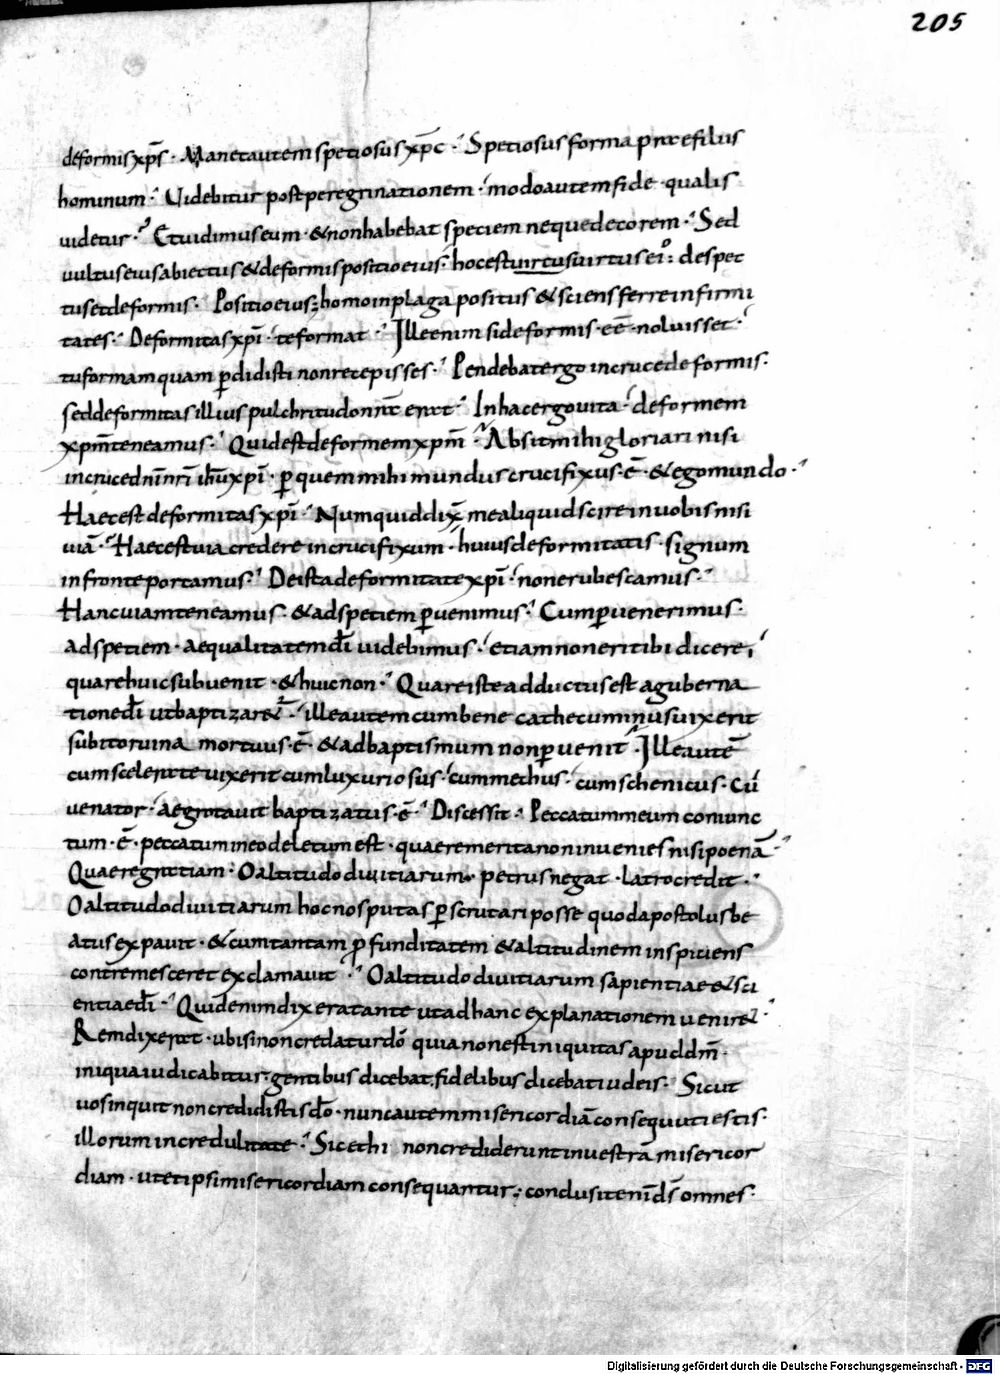 205
deformis xp̄s · Manet autem speciosus xp̄c · Speciosus forma prae filiis
hominum · Uidebitur post peregrinationem · modo autem fide · qualis
uidetur · Et uidimus eum · & non habebat speciem neque decorem · Sed
uultus eius abiectus & deformis positio eius · hoc est uirtus uirtus ei⁹ : despec
tus et deformis · Positio eius : homo in plaga positus & sciens ferre infirmi
tates · Deformitas xp̄i · te format · Ille enim si deformis · eē · noluisset ·
tu formam quam p̄didisti non recepisses · Pendebat ergo in cruce deformis ·
sed deformitas illius pulchritudo nr̄a erat · In hac ergo uita · deformem
xp̄m teneamus · Quid est deformem xp̄m · Absit mihi gloriari nisi
in cruce dn̄i nr̄i ih̄u xp̄i · p̄ quem mihi mundus crucifixus · ē · & ego mundo ·
Haec est deformitas xp̄i · Numquid dix̄ me aliquid scire in uobis nisi
uiā · Haec est uia credere in crucifixum · huius deformitatis · signum
in fronte portamus · De ista deformitate xp̄i · non erubescamus ·
Hanc uiam teneamus · & ad speciem p̄uenimus · Cum p̄uenerimus ·
ad speciem · aequalitatem dī uidebimus · etiam non erit ibi dicere ,
quare huic subuenit · & huic non · Quare iste adductus est a guberna
tione dī ut baptizar& · ille autem cum bene cathecuminus uixerit
subito ruina mortuus · ē · & ad baptismum non p̄uenit · Ille autē
cum scelerate uixerit cum luxuriosus · cum mechus · cum schenicus · cū
uenator · aegrotauit baptizatus · ē · Discessit · Peccatum meum coniunc
tum · ē · peccatum in eo deletum est · quaere merita non inuenies nisi poenā ·
Quaere gratiam · O altitudo diuitiarum · petrus negat · latro credit ·
O altitudo diuitiarum hoc nos putas p̄scrutari posse quod apostolus be
atus expauit · & cum tantam p̄funditatem & altitudinem inspiciens
contremesceret exclamauit · O altitudo diuitiarum sapientiae & sci
entiae dī · Quid enim dixerat ante ut ad hanc explanationem uenir& ·
Rem dixerat · ubi si non credatur dō quia non est iniquitas apud dm̄ ·
iniqua iudicabitur · gentibus dicebat, fidelibus dicebat iudeis · Sicut
uos inquit non credidistis dō · nunc autem misericordiā consequuti estis ·
illorum incredulitate · Sic et hi non crediderunt in uestrā misericor
diam · ut et ipsi misericordiam consequantur : conclusit enī dš omnes ·
Digitalisierung gefördert durch die Deutsche Forschungsgemeinschaft - DFG